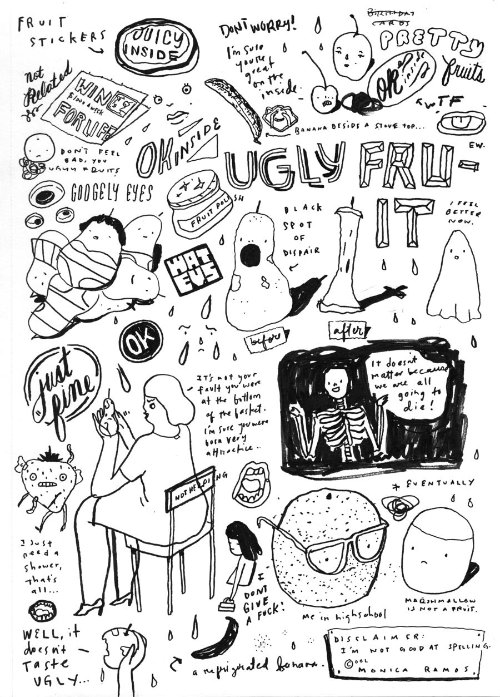 FRUIT
STICKERS
JUICY
INSIDE
DON'T WORRY!
I'm sure
you're
great
on the
inside.
BIRTHDAY
CARDS
PRETTY
fruits
OK inside
WTF
not
Related
WINES
FOR LIFE
DON'T FEEL
BAD, YOU
UGLY FRUITS
OK INSIDE
BANANA BESIDE A STOVE TOP...
EW.
UGLY FRU-
IT
GOOGELY EYES
FRUIT POLISH
BLACK
SPOT
OF
DISPAIR
I FEEL
BETTER
NOW.
HAT
EUS
before
after
OK
just
fine
IT'S not your
fault you were
at the bottom
of the basket.
I'm sure you were
born very
attractive...
It doesn't
matter because
we are all
going to
die!
* EVENTUALLY
NOT HELPING
I Just
need a
shower,
that's
all...
I
DONT
GIVE
A FUCK!
me in highschool
MARSHMALLOW
IS NOT A FRUIT.
WELL, it
doesn't
TASTE
UGLY...
a refrigerated banana.
DISCLAIMER:
I'M NOT GOOD AT SPELLING.
MONICA RAMOS